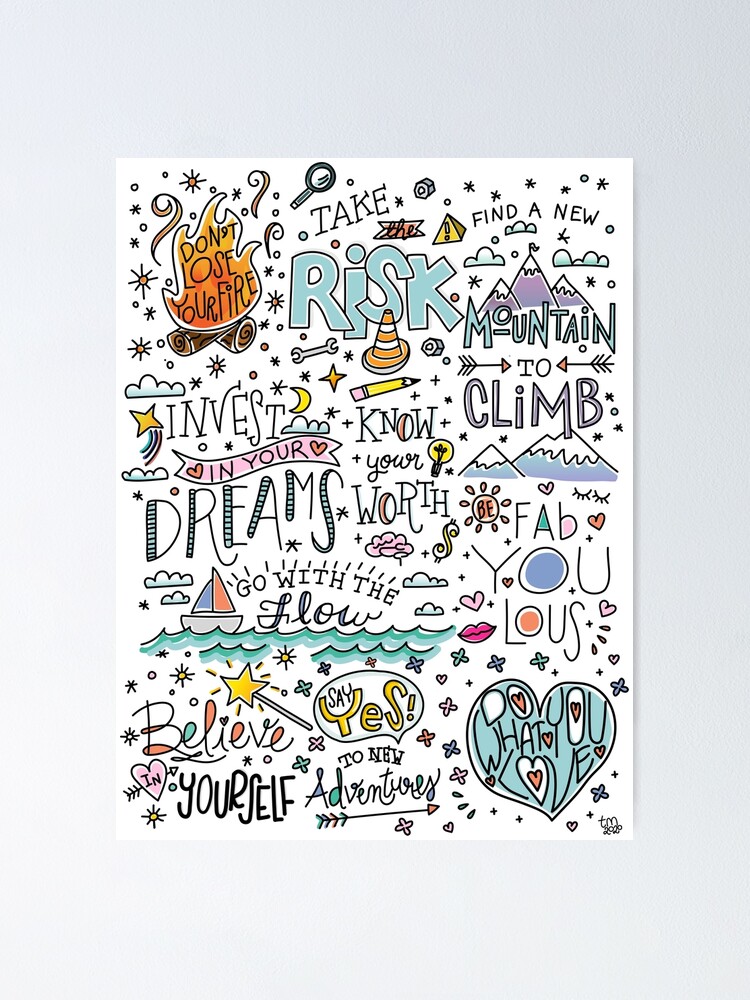 DON'T
LOSE
YOUR FIRE
TAKE
the
RiSK
FIND A NEW
MOUNTAIN
TO
CLiMB
INVEST
IN YOUR
DREAMS
KNOW
your
WORTH
BE
FAb
YOU
LOUS
GO WITH THE
flow
Believe
IN
YOURSELF
SAY
YeS!
TO NEW
Adventures
DO
WHAT YOU
LOVE
tm
2020